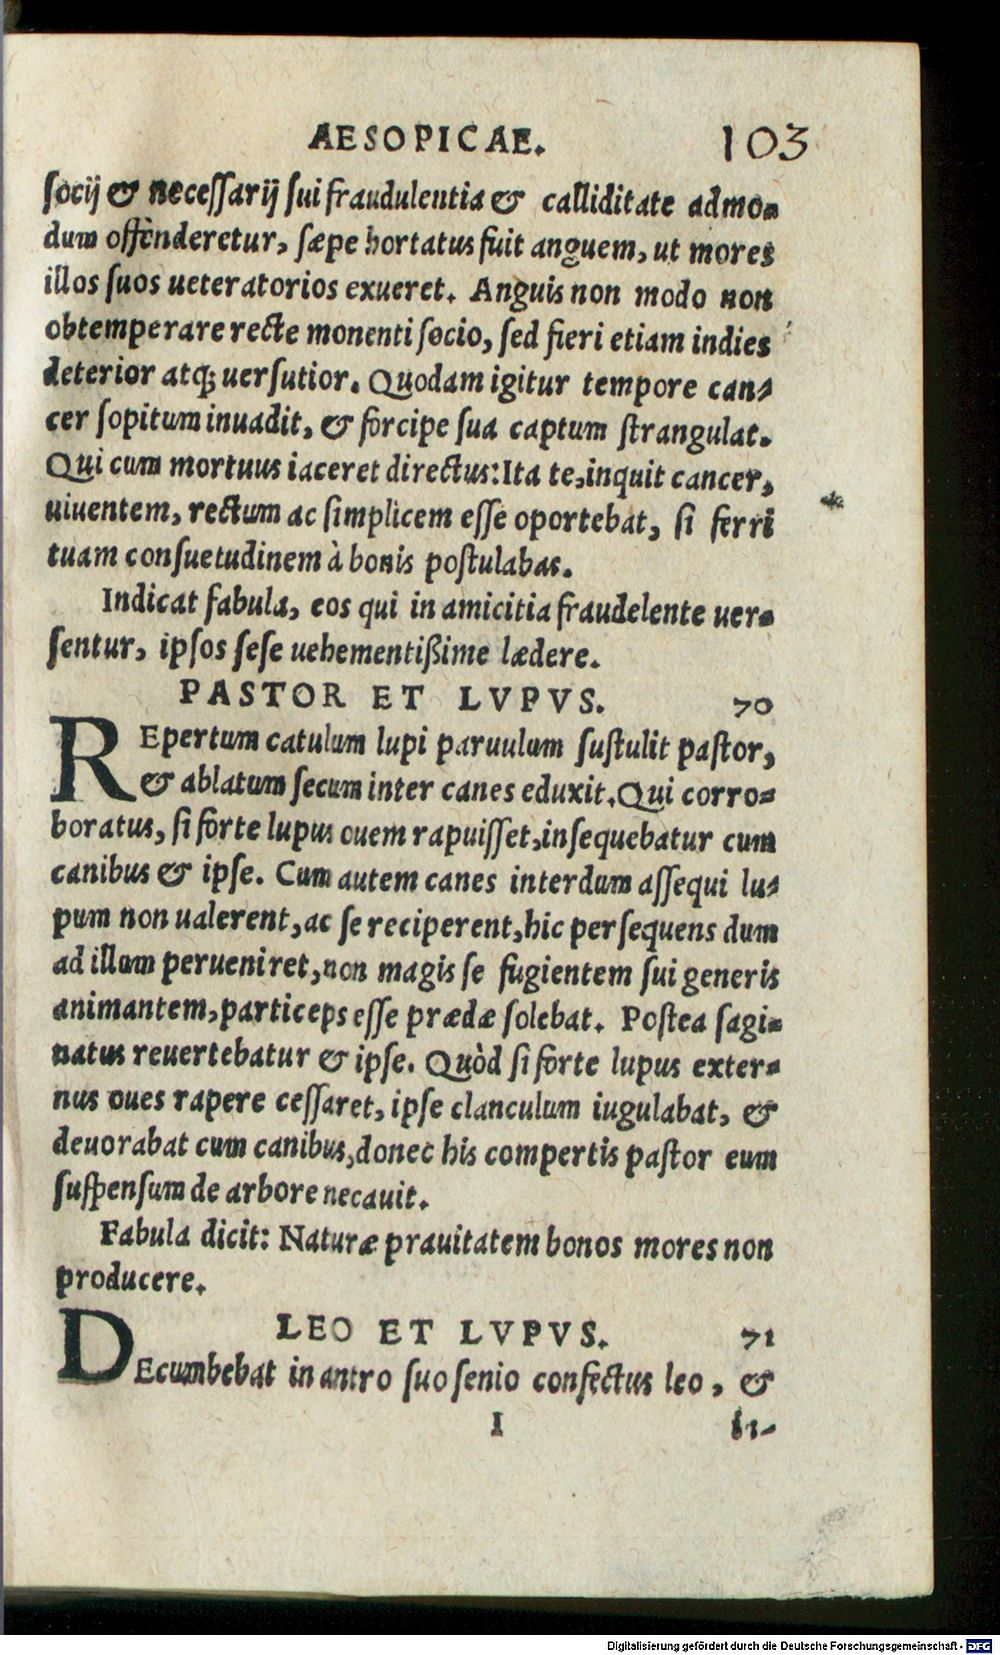 AESOPICAE. 103
socij & necessarij sui fraudulentia & calliditate admo-
dum offenderetur, sæpe hortatus fuit anguem, ut mores
illos suos ueteratorios exueret. Anguis non modo non
obtemperare recte monenti socio, sed fieri etiam indies
deterior atq; uersutior. Quodam igitur tempore can-
cer sopitum inuadit, & forcipe sua captum strangulat.
Qui cum mortuus iaceret directus: Ita te, inquit cancer,
uiuentem, rectum ac simplicem esse oportebat, si ferri *
tuam consuetudinem à bonis postulabas.
Indicat fabula, eos qui in amicitia fraudelente uer-
sentur, ipsos sese uehementißime lædere.
PASTOR ET LVPVS. 70
REpertum catulum lupi paruulum sustulit pastor,
& ablatum secum inter canes eduxit. Qui corro-
boratus, si forte lupus ouem rapuisset, insequebatur cum
canibus & ipse. Cum autem canes interdum assequi lu-
pum non ualerent, ac se reciperent, hic persequens dum
ad illum perueniret, non magis se fugientem sui generis
animantem, particeps esse prædæ solebat. Postea sagi-
natus reuertebatur & ipse. Quòd si forte lupus exter-
nus oues rapere cessaret, ipse clanculum iugulabat, &
deuorabat cum canibus, donec his compertis pastor eum
suspensum de arbore necauit.
Fabula dicit: Naturæ prauitatem bonos mores non
producere.
LEO ET LVPVS. 71
DEcumbebat in antro suo senio confectus leo, &
I
Digitalisierung gefördert durch die Deutsche Forschungsgemeinschaft - DFG